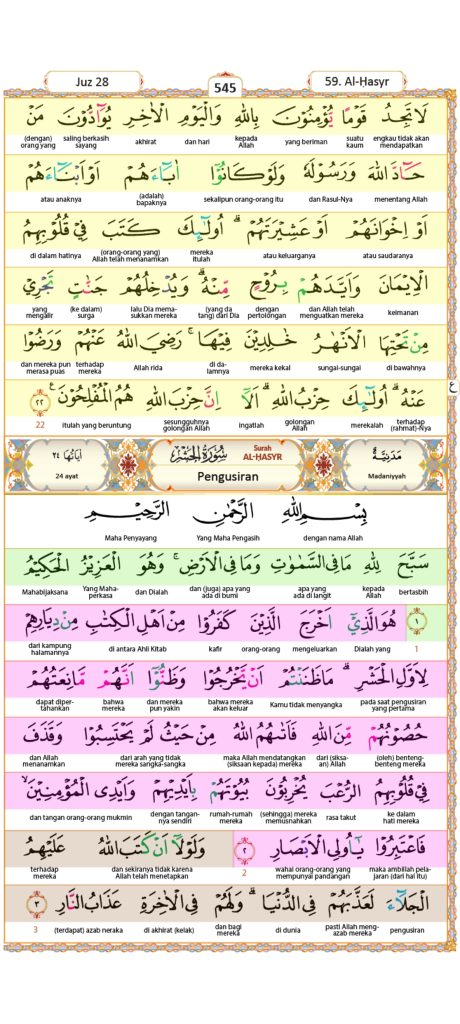 Juz 28 545 59. Al-Ḥasyr
لَا تَجِدُ قَوْمًا يُّؤْمِنُوْنَ بِاللّٰهِ وَالْيَوْمِ الْاٰخِرِ يُوَاۤدُّوْنَ مَنْ
engkau tidak akan mendapatkan suatu kaum yang beriman kepada Allah dan hari akhirat saling berkasih sayang (dengan) orang yang
حَاۤدَّ اللّٰهَ وَرَسُوْلَهٗ وَلَوْ كَانُوْٓا اٰبَاۤءَهُمْ اَوْ اَبْنَاۤءَهُمْ
menentang Allah dan Rasul-Nya sekalipun orang-orang itu (adalah) bapaknya atau anaknya
اَوْ اِخْوَانَهُمْ اَوْ عَشِيْرَتَهُمْۗ اُولٰۤىِٕكَ كَتَبَ فِيْ قُلُوْبِهِمُ
atau saudaranya atau keluarganya mereka itulah (orang-orang yang) Allah telah menanamkan di dalam hatinya
الْاِيْمَانَ وَاَيَّدَهُمْ بِرُوْحٍ مِّنْهُۗ وَيُدْخِلُهُمْ جَنّٰتٍ تَجْرِيْ
keimanan dan Allah telah menguatkan mereka dengan pertolongan (yang da tang) dari Dia lalu Dia mema- sukkan mereka (ke dalam) surga yang mengalir
مِنْ تَحْتِهَا الْاَنْهٰرُ خٰلِدِيْنَ فِيْهَاۗ رَضِيَ اللّٰهُ عَنْهُمْ وَرَضُوْا
di bawahnya sungai-sungai mereka kekal di da- lamnya Allah rida terhadap mereka dan mereka pun merasa puas
عَنْهُۗ اُولٰۤىِٕكَ حِزْبُ اللّٰهِۗ اَلَآ اِنَّ حِزْبَ اللّٰهِ هُمُ الْمُفْلِحُوْنَ ࣖ ٢٢
ع
terhadap (rahmat)-Nya merekalah golongan Allah ingatlah sesungguhnya golongan Allah itulah yang beruntung 22
مَدَنِيَّةٌ Surah AL-ḤASYR سُوْرَةُ الْحَشْرِ اٰيَاتُهَا ٢٤
Madaniyyah Pengusiran 24 ayat
بِسْمِ اللّٰهِ الرَّحْمٰنِ الرَّحِيْمِ
dengan nama Allah Yang Maha Pengasih Maha Penyayang
سَبَّحَ لِلّٰهِ مَا فِى السَّمٰوٰتِ وَمَا فِى الْاَرْضِۚ وَهُوَ الْعَزِيْزُ الْحَكِيْمُ
bertasbih kepada Allah apa yang ada di langit dan (juga) apa yang ada di bumi dan Dialah Yang Maha- perkasa Mahabijaksana
١ هُوَ الَّذِيْٓ اَخْرَجَ الَّذِيْنَ كَفَرُوْا مِنْ اَهْلِ الْكِتٰبِ مِنْ دِيَارِهِمْ
1 Dialah yang mengeluarkan orang-orang kafir di antara Ahli Kitab dari kampung halamannya
لِاَوَّلِ الْحَشْرِۗ مَا ظَنَنْتُمْ اَنْ يَّخْرُجُوْا وَظَنُّوْٓا اَنَّهُمْ مَّانِعَتُهُمْ
pada saat pengusiran yang pertama Kamu tidak menyangka bahwa mereka akan keluar dan mereka pun yakin bahwa mereka dapat diper- tahankan
حُصُوْنُهُمْ مِّنَ اللّٰهِ فَاَتٰىهُمُ اللّٰهُ مِنْ حَيْثُ لَمْ يَحْتَسِبُوْا وَقَذَفَ
(oleh) benteng- benteng mereka dari (siksa- an) Allah maka Allah mendatangkan (siksaan kepada) mereka dari arah yang tidak mereka sangka-sangka dan Allah menanamkan
فِيْ قُلُوْبِهِمُ الرُّعْبَ يُخْرِبُوْنَ بُيُوْتَهُمْ بِاَيْدِيْهِمْ وَاَيْدِى الْمُؤْمِنِيْنَۙ
ke dalam hati mereka rasa takut (sehingga) mereka memusnahkan rumah-rumah mereka dengan tangan- nya sendiri dan tangan orang-orang mukmin
فَاعْتَبِرُوْا يٰٓاُولِى الْاَبْصَارِ ٢ وَلَوْلَآ اَنْ كَتَبَ اللّٰهُ عَلَيْهِمُ
maka ambillah pela- jaran (dari hal itu) wahai orang-orang yang mempunyai pandangan 2 dan sekiranya tidak karena Allah telah menetapkan terhadap mereka
الْجَلَاۤءَ لَعَذَّبَهُمْ فِى الدُّنْيَاۗ وَلَهُمْ فِى الْاٰخِرَةِ عَذَابُ النَّارِ ٣
pengusiran pasti Allah meng- azab mereka di dunia dan bagi mereka di akhirat (kelak) (terdapat) azab neraka 3